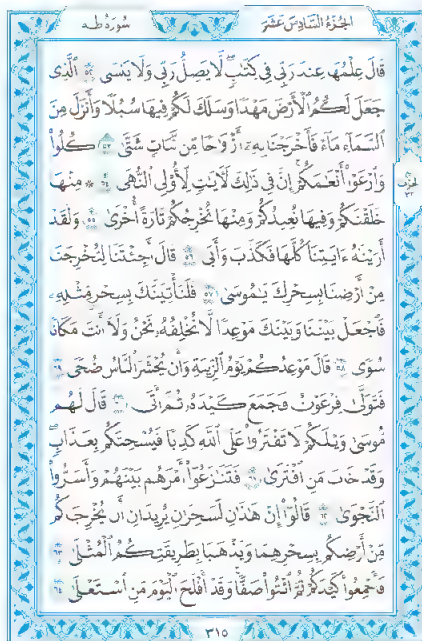 الجزء السادس عشر
سورة طه
قَالَ عِلْمُهَا عِندَ رَبِّى فِى كِتَٰبٍ لَّا يَضِلُّ رَبِّى وَلَا يَنسَى ٥٢ ٱلَّذِى
جَعَلَ لَكُمُ ٱلْأَرْضَ مَهْدًا وَسَلَكَ لَكُمْ فِيهَا سُبُلًا وَأَنزَلَ مِنَ
ٱلسَّمَآءِ مَآءً فَأَخْرَجْنَا بِهِۦٓ أَزْوَٰجًا مِّن نَّبَاتٍ شَتَّىٰ ٥٣ كُلُوا۟
وَٱرْعَوْا۟ أَنْعَٰمَكُمْ إِنَّ فِى ذَٰلِكَ لَءَايَٰتٍ لِّأُو۟لِى ٱلنُّهَىٰ ٥٤ ۞ مِنْهَا
خَلَقْنَٰكُمْ وَفِيهَا نُعِيدُكُمْ وَمِنْهَا نُخْرِجُكُمْ تَارَةً أُخْرَىٰ ٥٥ وَلَقَدْ
أَرَيْنَٰهُ ءَايَٰتِنَا كُلَّهَا فَكَذَّبَ وَأَبَىٰ ٥٦ قَالَ أَجِئْتَنَا لِتُخْرِجَنَا
مِنْ أَرْضِنَا بِسِحْرِكَ يَٰمُوسَىٰ ٥٧ فَلَنَأْتِيَنَّكَ بِسِحْرٍ مِّثْلِهِۦ
فَٱجْعَلْ بَيْنَنَا وَبَيْنَكَ مَوْعِدًا لَّا نُخْلِفُهُۥ نَحْنُ وَلَآ أَنتَ مَكَانًا
سُوًى ٥٨ قَالَ مَوْعِدُكُمْ يَوْمُ ٱلزِّينَةِ وَأَن يُحْشَرَ ٱلنَّاسُ ضُحًى ٥٩
فَتَوَلَّىٰ فِرْعَوْنُ فَجَمَعَ كَيْدَهُۥ ثُمَّ أَتَىٰ ٦٠ قَالَ لَهُم
مُّوسَىٰ وَيْلَكُمْ لَا تَفْتَرُوا۟ عَلَى ٱللَّهِ كَذِبًا فَيُسْحِتَكُم بِعَذَابٍ
وَقَدْ خَابَ مَنِ ٱفْتَرَىٰ ٦١ فَتَنَٰزَعُوٓا۟ أَمْرَهُم بَيْنَهُمْ وَأَسَرُّوا۟
ٱلنَّجْوَىٰ ٦٢ قَالُوٓا۟ إِنْ هَٰذَٰنِ لَسَٰحِرَٰنِ يُرِيدَانِ أَن يُخْرِجَاكُم
مِّنْ أَرْضِكُم بِسِحْرِهِمَا وَيَذْهَبَا بِطَرِيقَتِكُمُ ٱلْمُثْلَىٰ ٦٣
فَأَجْمِعُوا۟ كَيْدَكُمْ ثُمَّ ٱئْتُوا۟ صَفًّا وَقَدْ أَفْلَحَ ٱلْيَوْمَ مَنِ ٱسْتَعْلَىٰ ٦٤
٣١٥